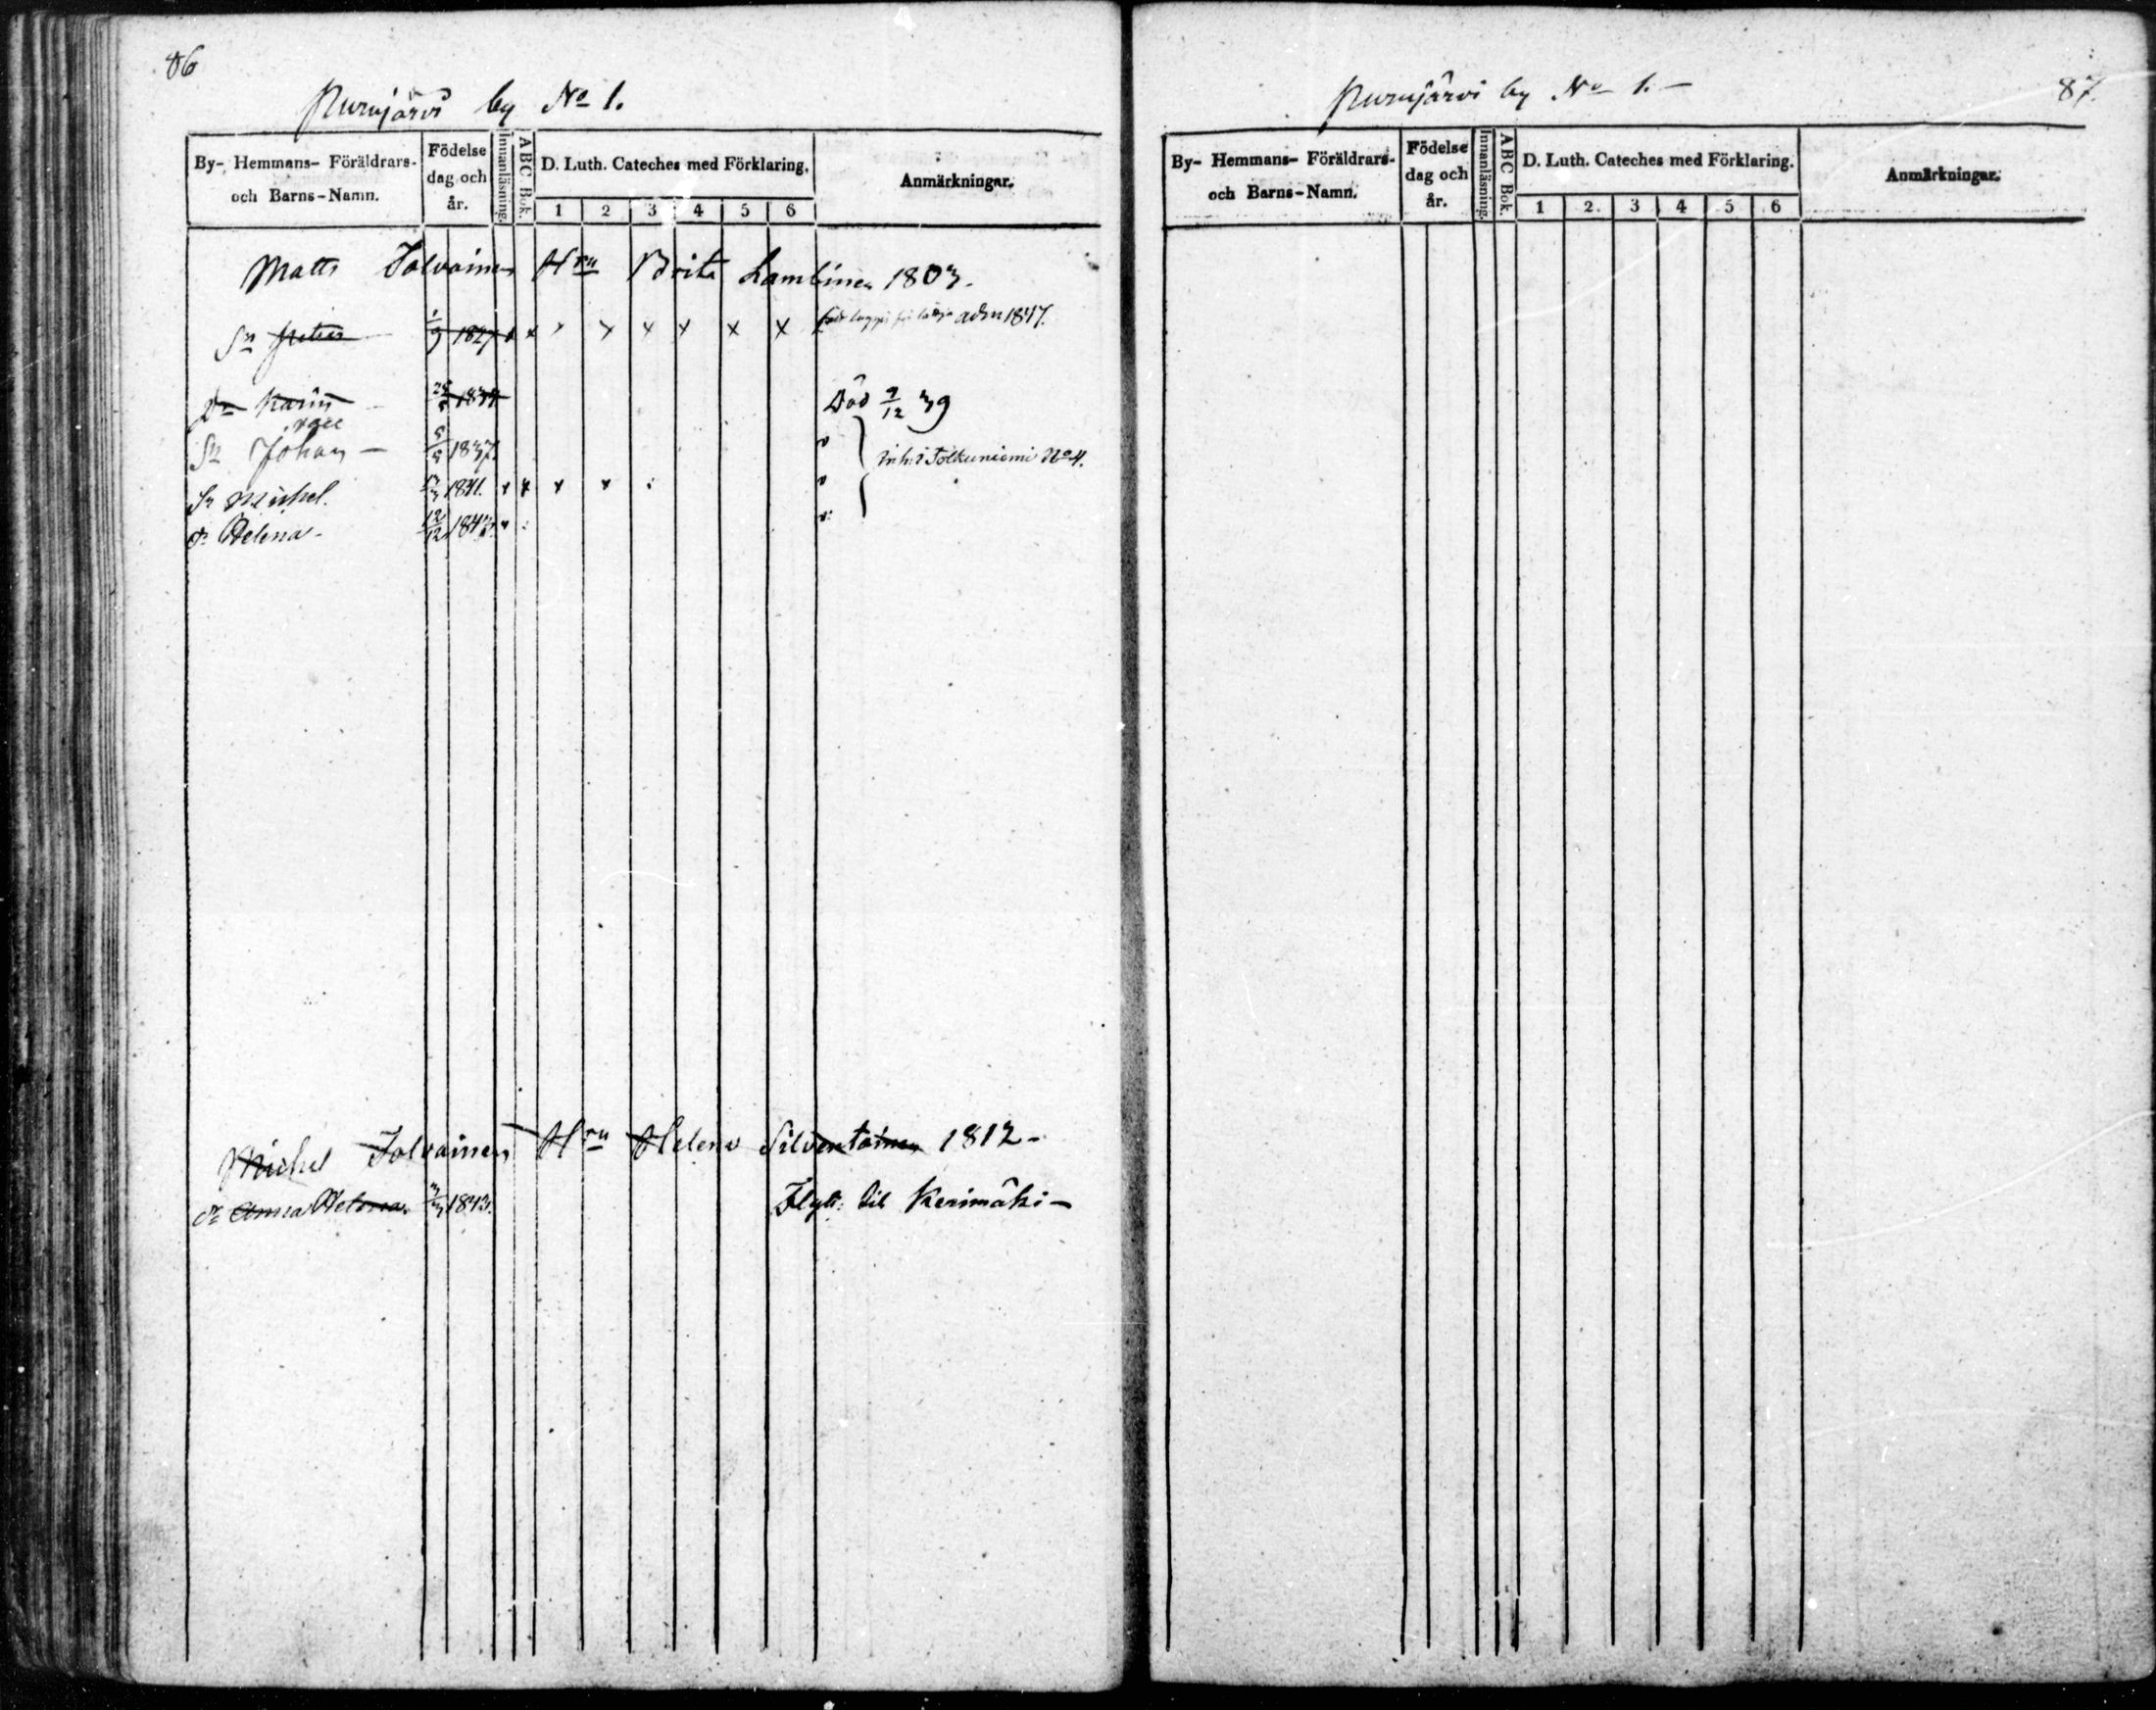 86
Purujärvi by No 1.
By- Hemmans- Föräldrars-
och Barns-Namn.
Födelse
dag och
år.
Innanläsning.
ABC Bok.
D. Luth. Cateches med Förklaring.
1 2 3 4 5 6
Anmärkningar.
Matts Tolvainen Hru Brita Lambinen 1803.
Sn Peter 1/9 1827 x x x x x x x x adm 1847.
Dr Karin 1834 Död 9/12 39
Sn Johan 5/5 1837.
inh: i Tolkuniemi No 4.
Sn Michel. 1841. x x x x
Dr Helena 12/12 1843.
Michel Tolvainen Hru Helena Silventoinen 1812
Dr Anna Helena. 1843. Flytt: till Kerimäki
Purujärvi by No 1.
87.
By- Hemmans- Föräldrars-
och Barns-Namn.
Födelse
dag och
år.
Innanläsning.
ABC Bok.
D. Luth. Cateches med Förklaring.
1 2. 3 4 5 6
Anmärkningar.